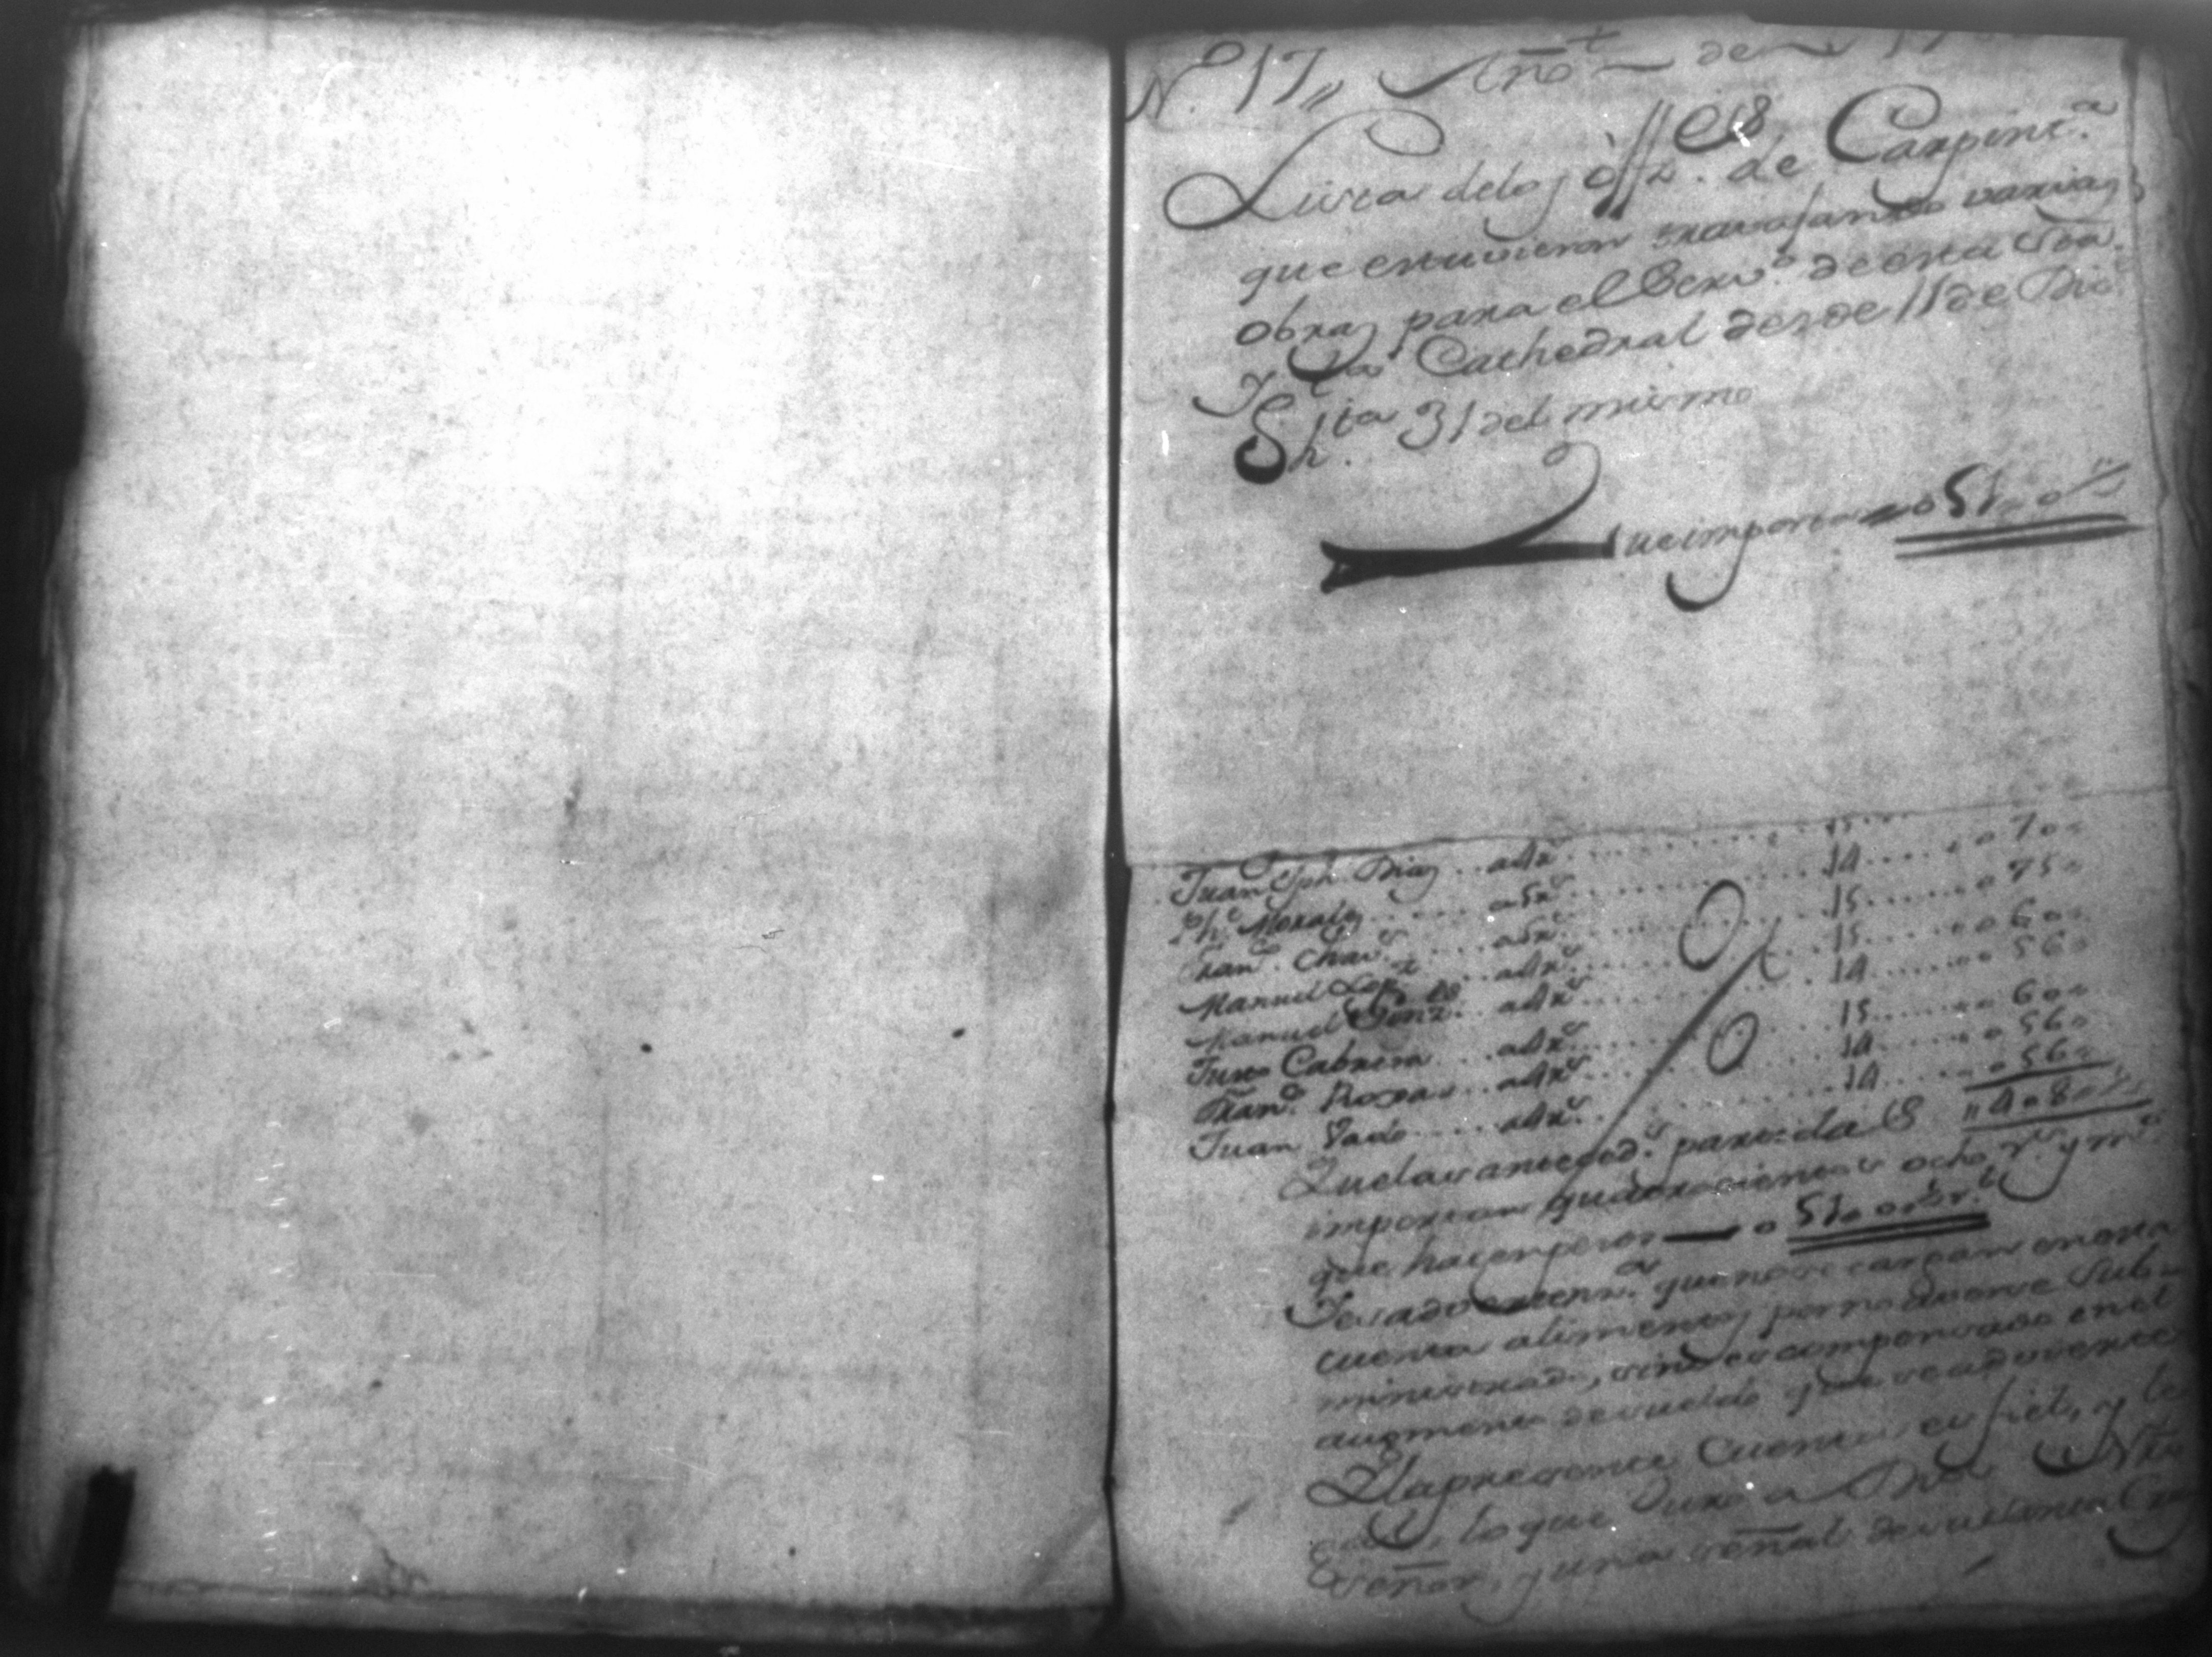 N.º 17,, Año de 17
Lista delos òff.es de Carpint.a
que estuvieron travajando varias
obras para el Serv.o de esta Sta.
Yg.la Cathedral desde 11 de Dic.e
h.ta 31 del mismo
Que importa 51,, 0
Juan Jph. Diaz .. a 4 r.s ....... 15 .... 
Ph.e Morales ...... a 5 r.s ....... 14 .... 70
Fran.co Chav.s .... a 5 r.s ....... 15 .... 75
Manuel Lop.z .... a 4 r.s ....... 15 .... 60
Manuel Gonz.s .. a 4 r.s ....... 14 .... 56
Juan Cabrera .... a 4 r.s ....... 15 .... 60
Fran.co Roxas .. a 4 r.s ....... 14 .... 56
Juan ..... a 4 r.s ....... 14 .... 56
Que las anteced.s partidas 408
importan quatrocientos ocho r.s y m.s
que hacen pesos — 51
Y es advertenz.a que no se cargan en esta
cuenta alimentos por no averse sub-
ministrado, sino es compensado en el
augmento de sueldo que se advierte
Y la presente Cuenta es fiel, y le
gal, lo que Juro a Dios Nro
Señor, y una señal de su Santa Cruz